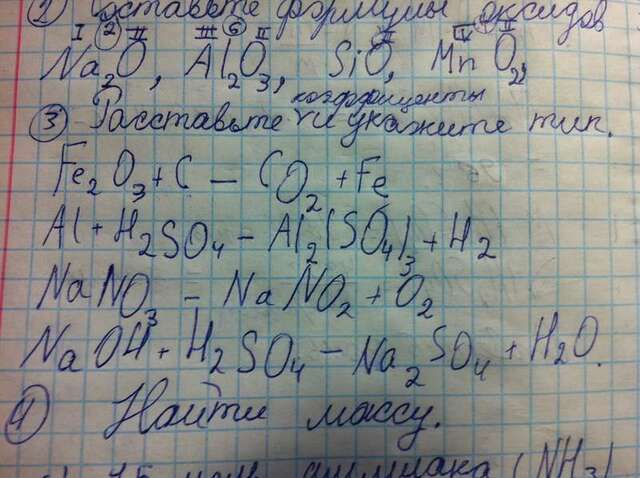 2) Составьте формулы оксидов
I (2) II III (6) II II IV II
Na₂O, Al₂O₃, SiO, MnO₂,
коэффициенты
③ Расставьте и укажите тип.
Fe₂O₃ + C — CO₂ + Fe
Al + H₂SO₄ — Al₂(SO₄)₃ + H₂
NaNO₃ — NaNO₂ + O₂
NaOH + H₂SO₄ — Na₂SO₄ + H₂O.
④ Найти массу.
аммиака (NH₃)